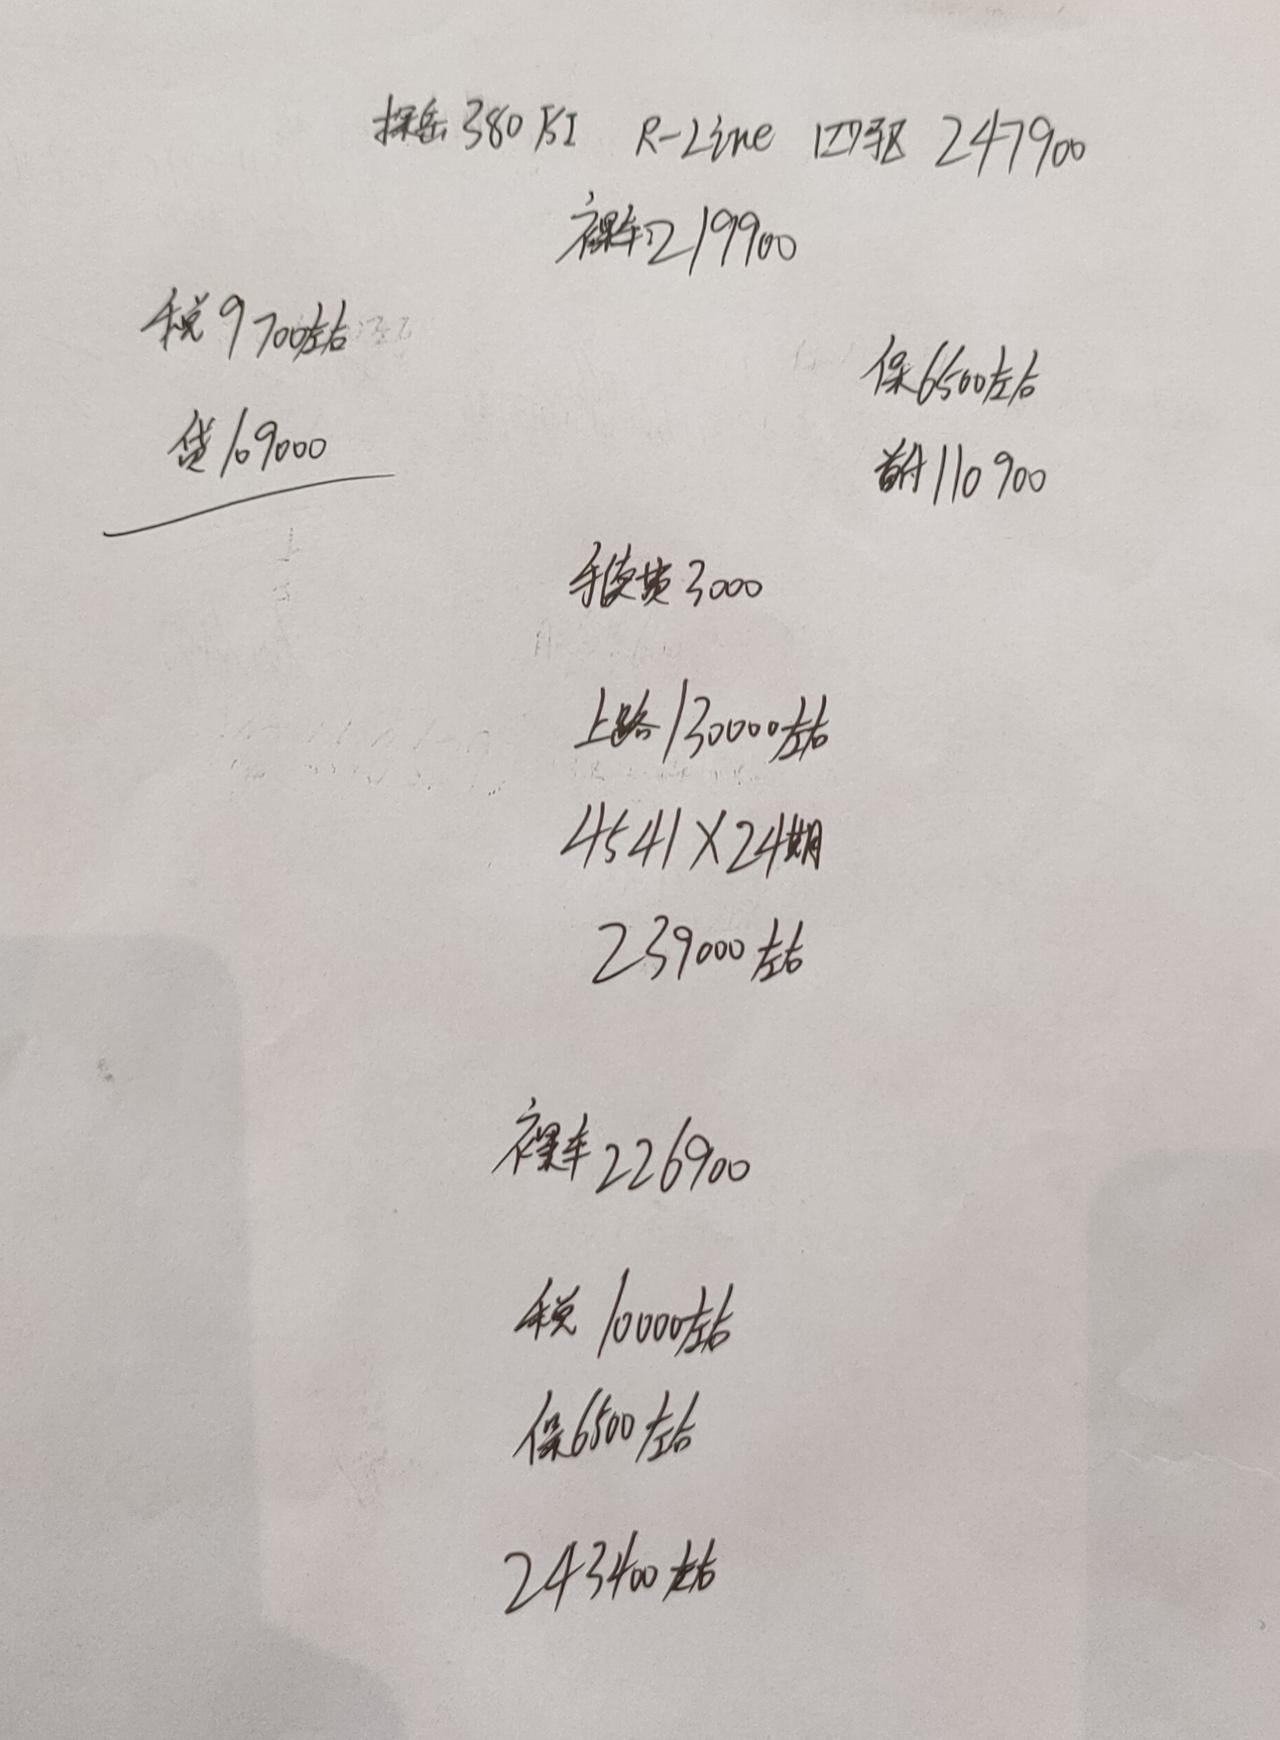 探岳380TSI R-Line 四驱 247900
裸车:219900
税9700左右
保6500左右
贷109000
首付110900
手续费3000
上路130000左右
4541×24期
239000左右
裸车226900
税10000左右
保6500左右
243400左右